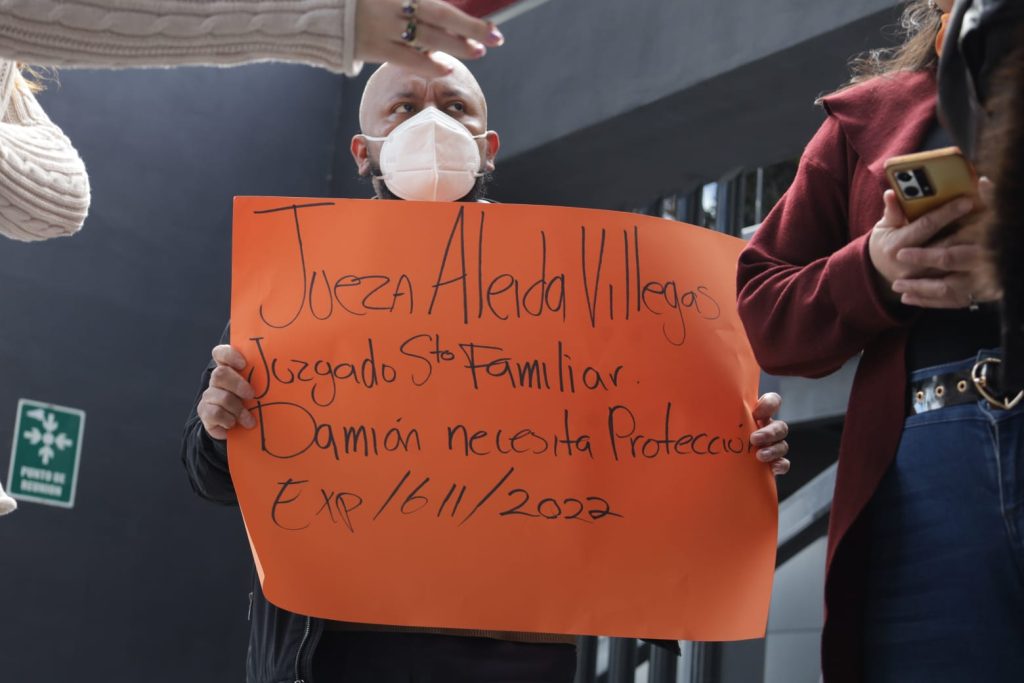 Jueza Aleida Villegas
Juzgado 5to Familiar.
Damián necesita Protección
Exp/1611/2022
PUNTO DE
REUNIÓN